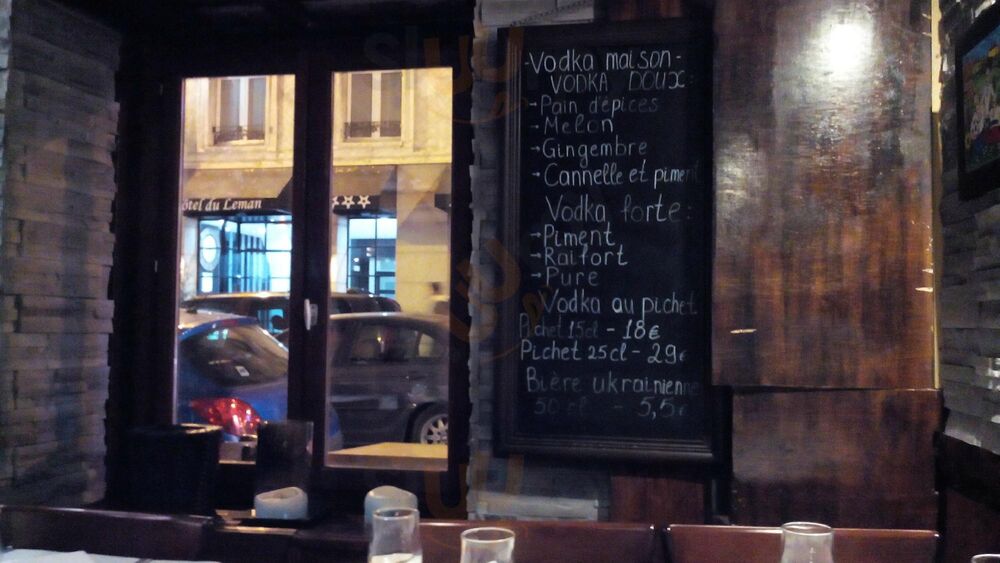 ôtel du Leman
-Vodka maison-
VODKA DOUX:
-Pain d'épices
-Melon
-Gingembre
-Cannelle et piment
Vodka forte:
-Piment
-Raifort
-Pure
Vodka au pichet
Pichet 15cl - 18€
Pichet 25cl - 29€
Bière ukrainienne
50 cl - 5,5€